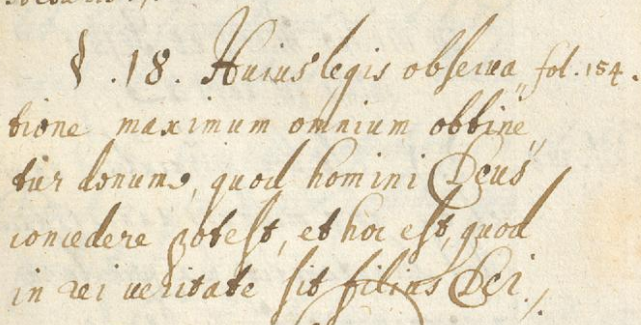 § .18. Huius legis obserua„ fol. 154.
tione maximum omnium obtine„
tur donum, quod homini Deus
concedere potest, et hoc est, quod
in rei ueritate sit filius Dei.